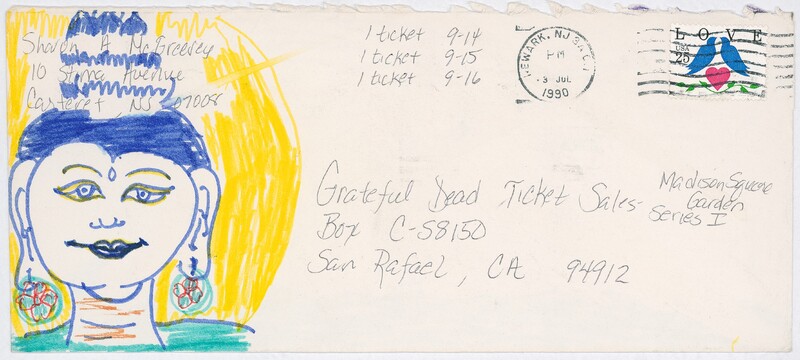 Sharon A McGreevey
10 Stima Avenue
Carteret, NJ 07008
1 ticket 9-14
1 ticket 9-15
1 ticket 9-16
NEWARK, NJ
PM
3 JUL
1990
LOVE
USA
25
Grateful Dead Ticket Sales-
Box C-S8150
San Rafael, CA 94912
Madison Square
Garden
Series I